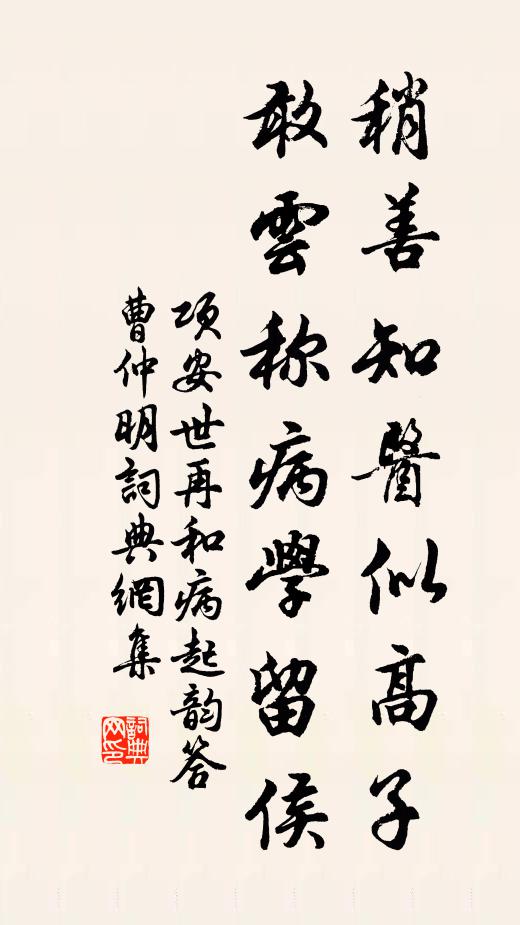 稍善知醫似高子
敢雲称病學留侯
项安世再和病起韵答
曹仲明詞典網集
詞典网印